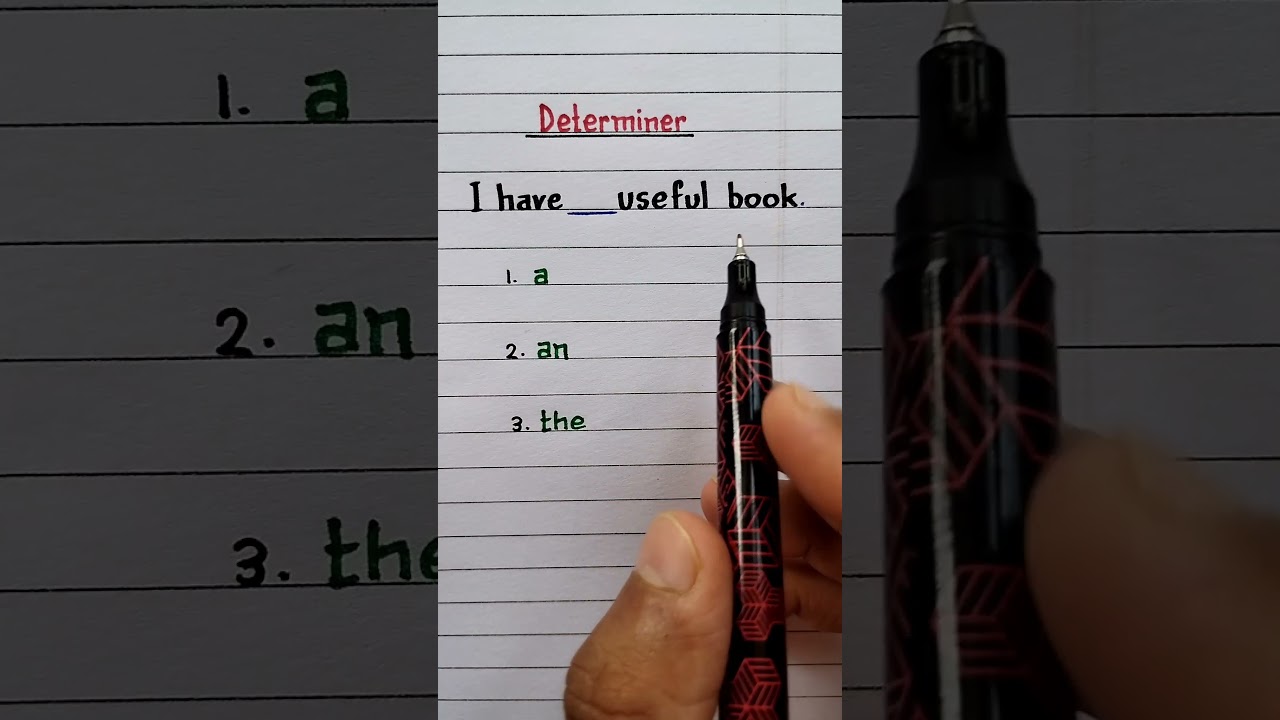 Determiner
I have ___ useful book.
1. a
2. an
3. the